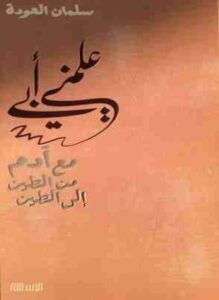 سلمان العودة
علمني أبي
مع آدم
من الطين
إلى الطين